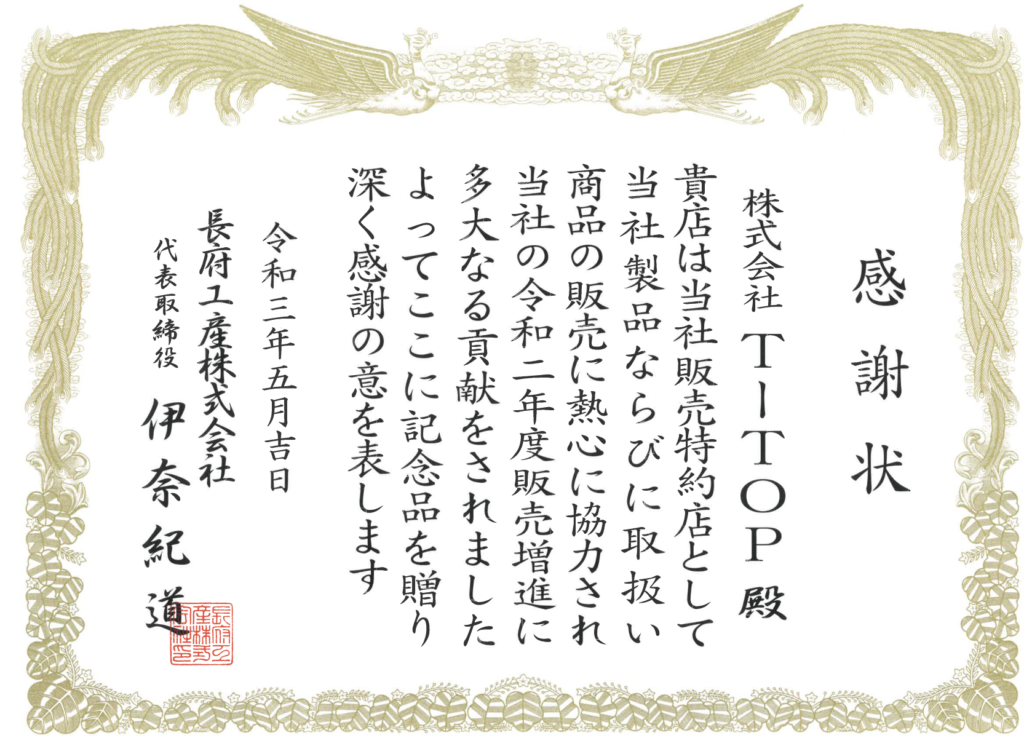 感謝状
株式会社 TITOP 殿
貴店は当社販売特約店として
当社製品ならびに取扱い
商品の販売に熱心に協力され
当社の令和二年度販売増進に
多大なる貢献をされました
よってここに記念品を贈り
深く感謝の意を表します
令和三年五月吉日
長府工産株式会社
代表取締役 伊奈紀道
長府工
産株式
会社印